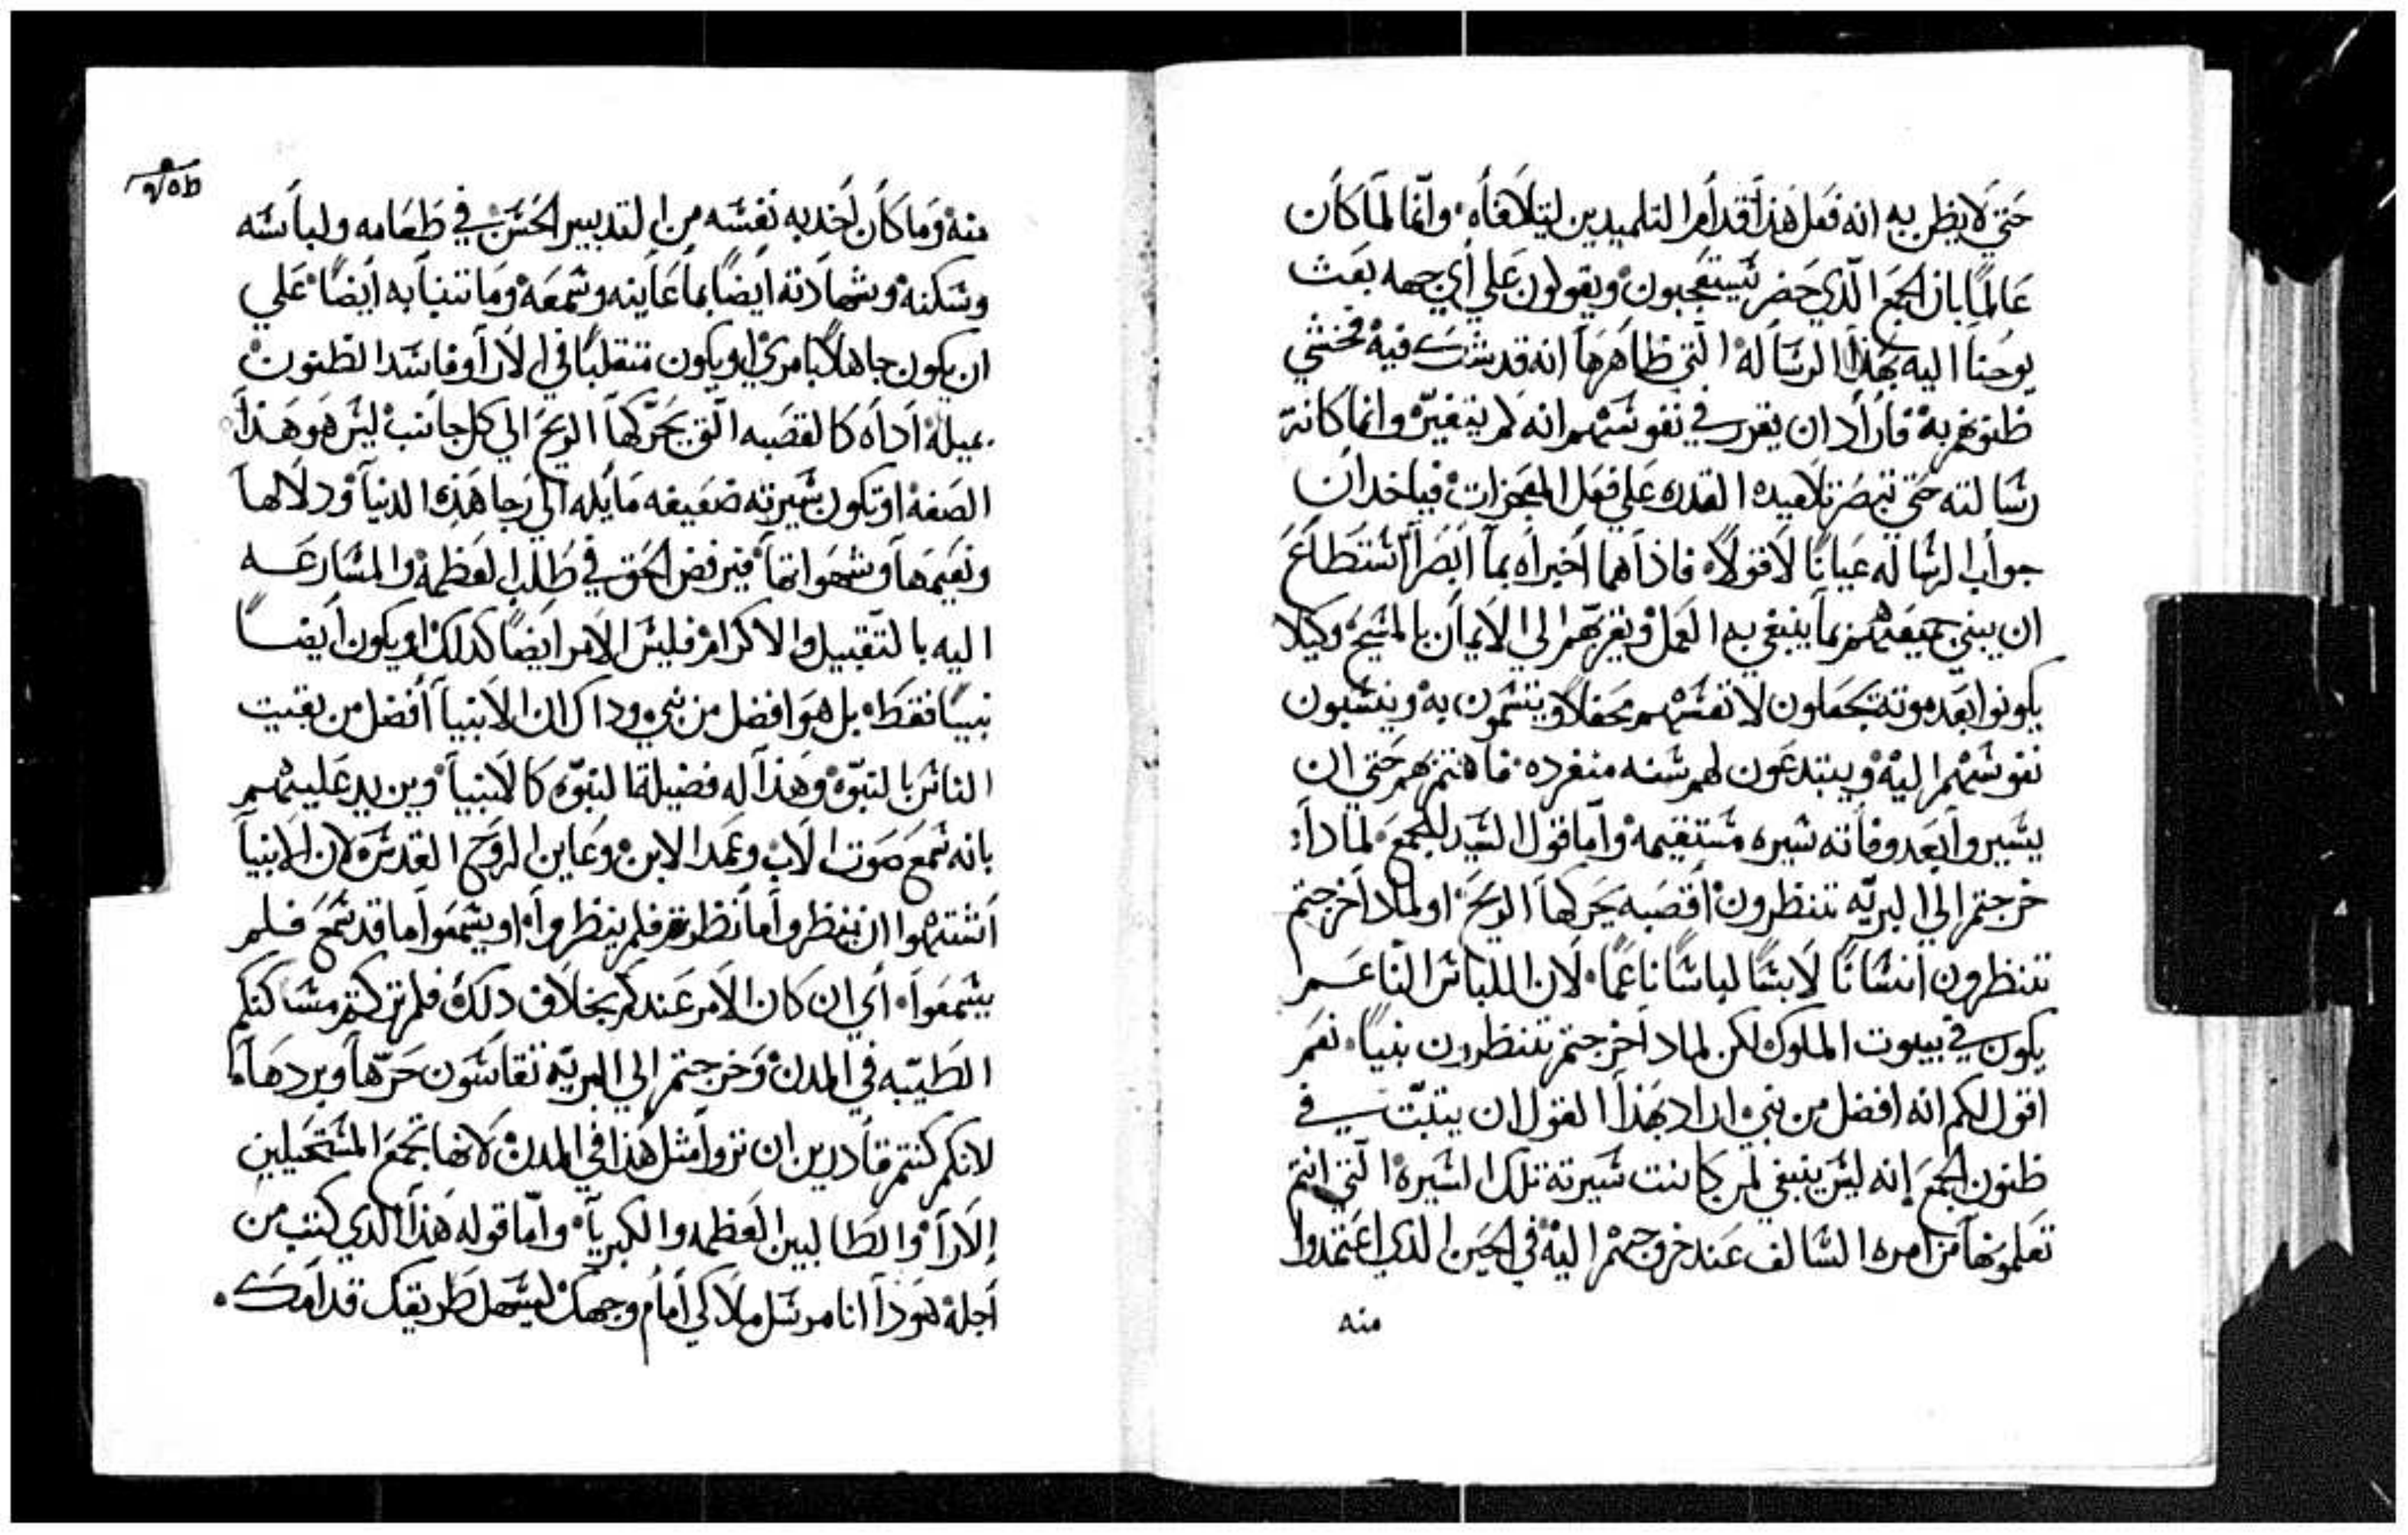 حتي لا يظن به انه فعل هذا قد امر التلميدين ليتلافاه وانما لما كان
عالماً بان الجمع الذي حضر تيستعجبون ويقولون علي أي جهه بعث
يوحنا اليه بهذا الرساله التي ظاهرها انه قد شك فيه فخشي
ظنونهم به فاراد ان يقرر في نفوسهم انه لم يتغير وانما كانت
رسالته حتي تبصر تلاميده القدره علي فعل المعجزات فياخدان
جواب الرساله عياناً لا قولاً فاذا هما اخبراه بما ابصرا استطاع
ان يبني جميعهم بما ينبغي به العمل ويقربهم الي الايمان بالمسيح وكيلا
يكونوا بعد موته يجعلون لانفسهم محفلاً ويتسمون به وينسبون
نفوسهم اليه ويبتدعون لهم سنه منفرده فاهتم بهم حتي ان
يسيروا بعد وفاته سيره مستقيمه واما قول السيد للجمع لمادا
خرجتم الي البريه تنظرون اقصبه يحركها الريح او لمادا خرجتم
تنظرون انساناً لابساً لباساً ناعماً لان اللباس الناعم
يكون في بيوت الملوك لكن لمادا خرجتم تنظرون نبياً نعم
اقول لكم انه افضل من نبي اراد بهذا القول ان يتبت في
ظنون الجمع إنه ليس ينبغي لمن كانت سيرته تلك السيره التي انتم
تعلمونها من امره السالف عند خروجهم اليه في الحين الدي اعتمدوا
منه
منه وما كان اخد به نفسه من التدبير الحسن في طعامه ولباسه
وسكنه وشهادته ايضاً بما عاينه وسمعه وما تنبا به ايضاً علي
ان يكون جاهلاً بامري او يكون متقلباً في الارا وفاسد الظنون
يميله اداه كالقصبه التي تحركها الريح الي كل جانب ليس هو هذا
الصفه او تكون سيرته ضعيفه مايله الي رجا هذه الدنيا ودلالها
ونعيمها وشهواتها فيرفض الحق في طلب العظمه والمسارعه
اليه بالتقبيل والاكرام فليس الامر ايضاً كدلك او يكون ايضاً
نبياً فقط بل هو افضل من نبي وداك ان الانبيا أفضل من بقيت
الناس بالنبوه وهذا له فضيلة النبوه كالانبيا ويزيد عليهم
بانه سمع صوت الاب وعمد الابن وعاين الروح القدس لان الانبيا
اشتهوا ان ينظروا ما نظرتم فلم ينظروا او يسمعوا ما قد سمع فلم
يسمعوا أي ان كان الامر عندكم بخلاف دلك فلم تركتم مساكنكم
الطيبه في المدن وخرجتم الي البريه تقاسون حرها وبردها
لانكم كنتم قادرين ان تروا مثل هذا في المدن لانها تجمع المستحيلين
الارا والطالبين العظمه والكبريا واما قوله هذا الدي كتب من
اجله هودا انا مرسل ملاكي أمام وجهك ليسهل طريقك قدامك